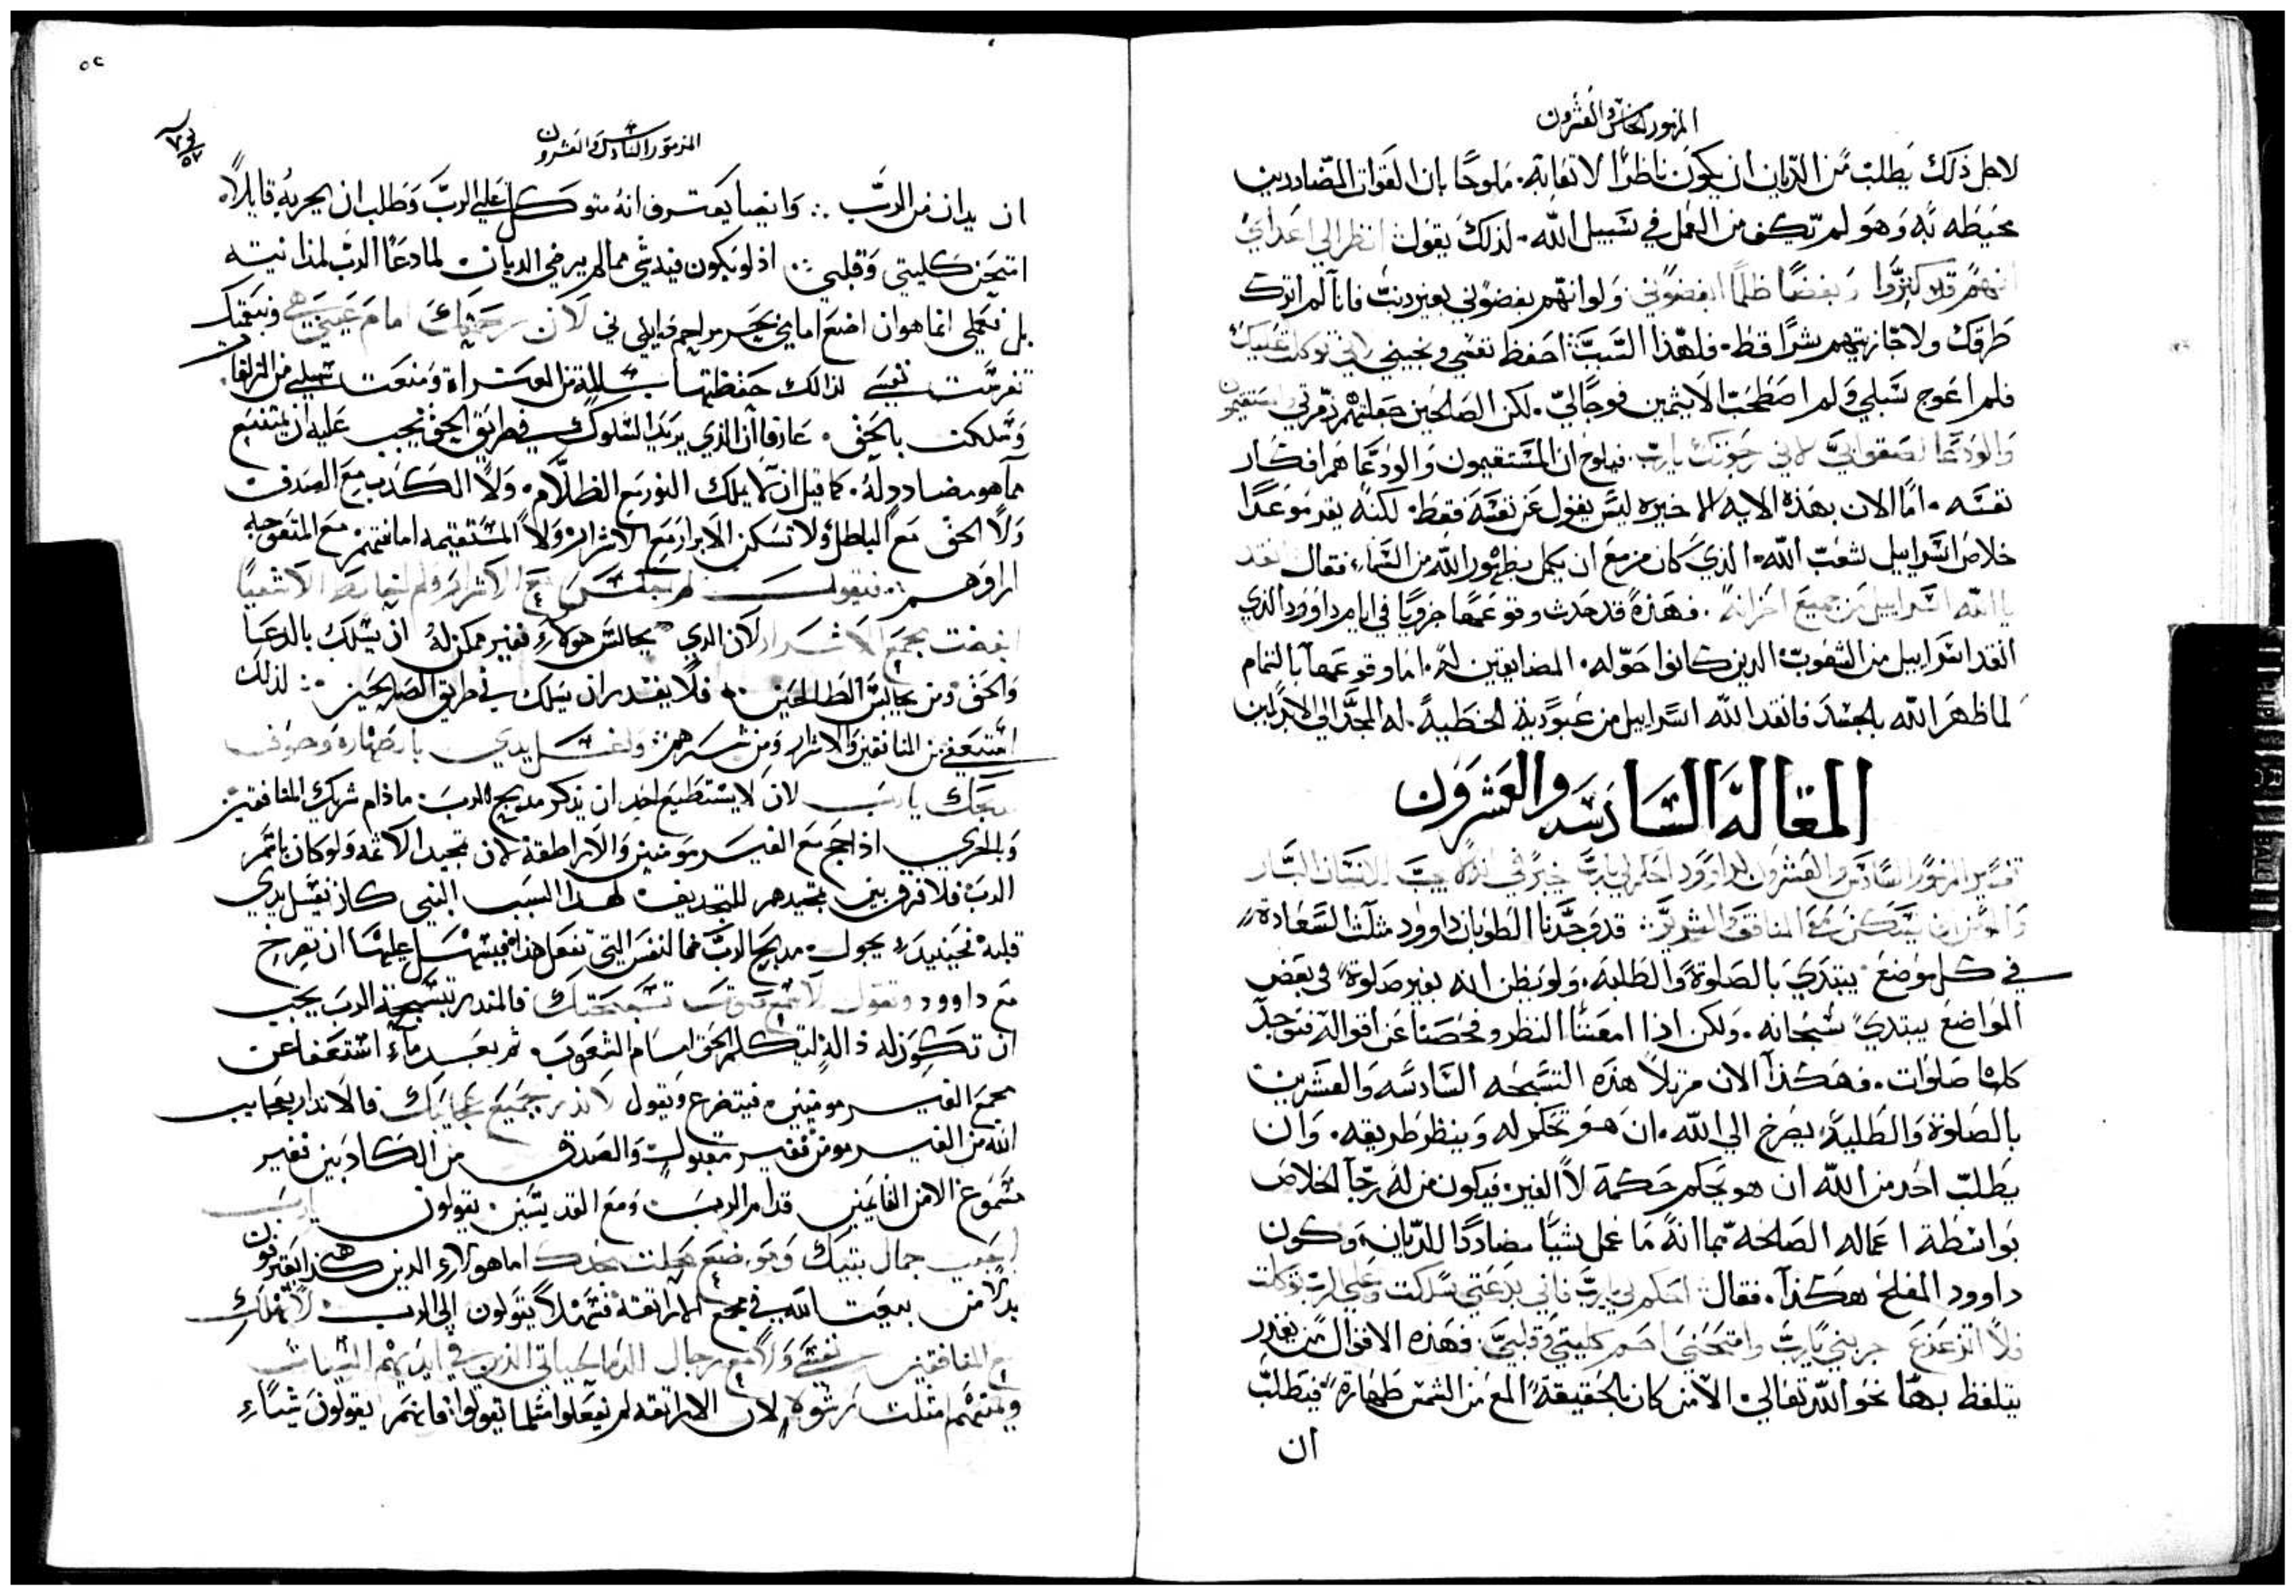 المزمور الخامس والعشرون
لاجل ذلك يطلب من الديان ان يكون ناظرًا لاتعابه. ملوحًا بان القوات المضاددين
محيطه به وهو لم يكف من العمل في سبيل الله. لذلك يقول انظر الي اعداي
انهم قد كثروا وبغضًا ظلمًا ابغضوني ولو انهم بغضوني بغير ذنب فانا لم اترك
طرقك ولا جازيتهم شرًا قط. فلهذا السبب احفظ نفسي ونجيني لاني توكلت عليك
فلم اعوج سبلي ولم اصطحب الاثمين فوجًا لي. لكن الصالحين جعلتهم زمرتي والمستقيمون
والودعا لصقوا بي لاني رجوتك يارب. فيلوح ان المستقيمون والودعا هم افكار
نفسه. اما الان بهذه الايه الاخيره ليس يقول عن نفسه فقط. لكنه يقدم وعدًا
خلاص اسراييل شعب الله. الذي كان مزمع ان يكمل بظهور الله من السماء. فقال انقد
يا الله اسراييل من جميع احزانه. فهذه قد حدث وقوعها جزويًا في ايام داوود الذي
انقد اسراييل من الشعوب الذين كانوا حوله. المضايقين له. اما وقوعها بالتمام
لما ظهر الله بالجسد فانقد الله اسراييل من عبودية الخطية. له المجد الي الابد امين
المقالة السادسه والعشرون
تفسير المزمور السادس والعشرون لداوود احكم لي يارب
قد وجدنا الطوبان داوود مثلث السعادة
في كل موضع يبتدي بالصلوة والطلبه. ولو يظن انه بغير صلوة في بعض
المواضع يبتدي سبحانه. ولكن اذا امعننا النظر وفحصنا عن اقواله فنوجد
كلها صلوات. فهكذا الان مرتلاً هذه التسبحه السادسه والعشرين
بالصلوة والطلبة يصرخ الي الله. ان هو يحكم له وينظر طريقه. وان
يطلب احد من الله ان هو يحكم حكمه لا الغير. فيكون من له رجا الخلاص
بواسطة اعماله الصالحه بما انه ما عمل شيًا مضاددًا للديان. وكون
داوود المفلح هكذا. فقال احكم لي يارب فاني بدعتي سلكت وعلي الرب توكلت
فلا اتزعزع جربني يارب وامتحنني احم كليتي وقلبي. فهذه الاقوال من يقدر
يتلفظ بها نحو الله تعالي الا من كان بالحقيقة المع من الشمس طهارة فيطلب
ان
٥٢
المزمور السادس والعشرون
ان يدان من الرب وايضا يعترف انه متوكل علي الرب وطلب ان يجربه قايلاً
امتحن كليتي وقلبي اذ لو يكون فيه شي مما لم يرضي الديان لما دعا الرب لمداينته
بل نعملي انما هو ان اضع امامي بحر مراحم فيايلي ني لان رحمتك امام عيني هي وبنعمتك
تغرست نفسي لذالك حفظتها سالمة من العثراة ومنعت سبيلي من الزلقا.
وسلكت بالحق. عارفا ان الذي يريد السلوك في طريق الحق يجب عليه ان يمتنع
مما هو مضادد له. كما قيل ان لا يملك النور مع الظلام. ولا الكدب مع الصدق
ولا الحق مع الباطل ولا تسكن الابرار مع الاشرار ولا المستقيمه امانتهم مع المتعوجه
اراوهم. فيقول لم اجلس مع
ابغضت مجمع الاشرار لان الذي يجالس هولاء فغير ممكن له ان يسلك بالدعا
والحق ومن يجالس الطالحين. فلا يقدر ان يسلك في طريق الصالحين لذلك
امتنع من المنافقين والاشرار ومن شرهم ولغسل يدي بالطهاره وحوف
يارب لان لا يستطيع احد ان يذكر مديح الرب. ماذام شريك المنافقين
وبالحري اذا جمع مع الغير مومنين والاراطقة لان تمجيد الاثمه ولو كان باسم
الرب فلا فرق بين تمجيدهم للتجديف لهدا السبب النبي كان يغسل يدي
قلبه فحينيد يجول مديح الرب فما النفس التي تفعل هذا فيسهل عليها ان تصرخ
مع داوود وتقول لاسمع صوت تسبحتك فالمنذر تسبحة الرب يجب
ان تكون له ذالة ليتكلم الحق امام الشعوب. ثم بعد ما استعفا عن
مجمع الغير مومنين فيتضرع ويقول لانذر بجميع عجايبك فالانذار بعجايب
الله من الغير مومن فغير مقبول والصدق من الكادبين فغير
مسموع الا من القايمين قدام الرب ومع القديسين. يقولون يارب
احببت جمال بيتك وموضع محلت مجدك اما هولاء الذين
بدلاً من بيت الله في مجمع الاراتقة فتمهلاً يقولون الي الرب لا تهلك
مع المنافقين نفسي ولا مع رجال الدما حياتي الذين في ايديهم السيات
ويمينهم امتلت رشوه لان الاراتقه لم يفعلوا مثلما تقولوا فانهم يقولون شياء